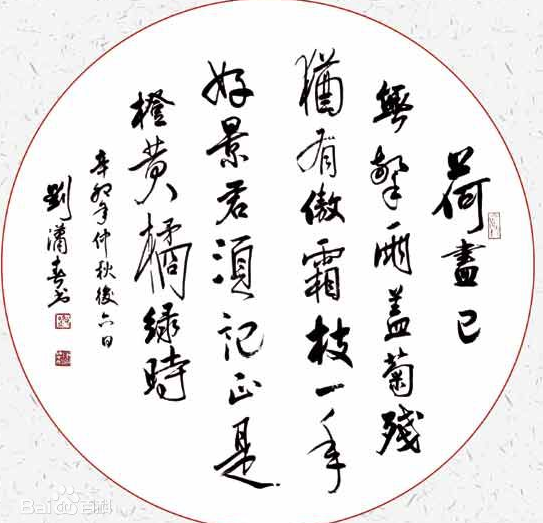 荷盡已
無擎雨蓋菊殘
猶有傲霜枝一年
好景君須記正是
橙黃橘綠時
辛卯年仲秋後六日
劉瀟春书
Bai百科